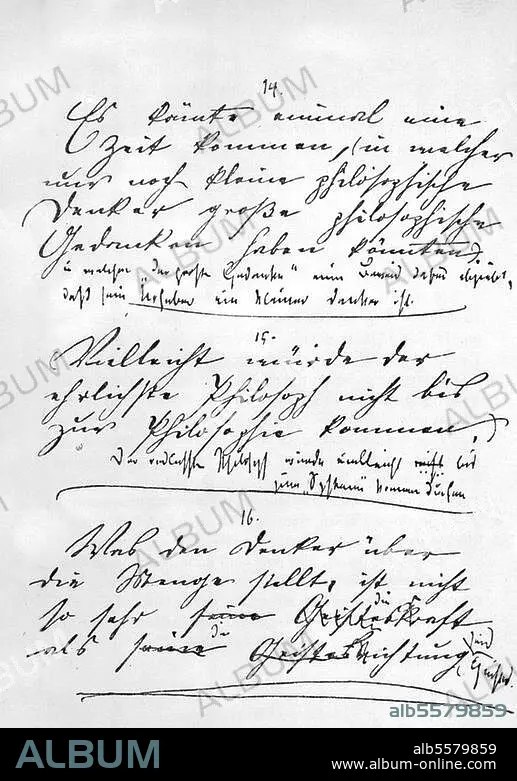 14.
Es könnte einmal eine
Zeit kommen, (in welcher
nur noch kleine philosophische
Denker große philosophische
Gedanken haben könnten)
in welcher der "große Gedanke" einen Beweis dafür abgiebt,
daß sein Urheber ein kleiner Denker ist.
15.
(Vielleicht würde der
ehrlichste Philosoph nicht bis
zur Philosophie kommen,)
Der redlichste Philosoph würde vielleicht nicht bis
zum "System" kommen
16.
Was den Denker über
die Menge stellt, ist nicht
so sehr seine die Geisteskraft
als seine die Geistesrichtung
ALBUM
alb5579859
ALBUM
alb5579859
www.album-online.com